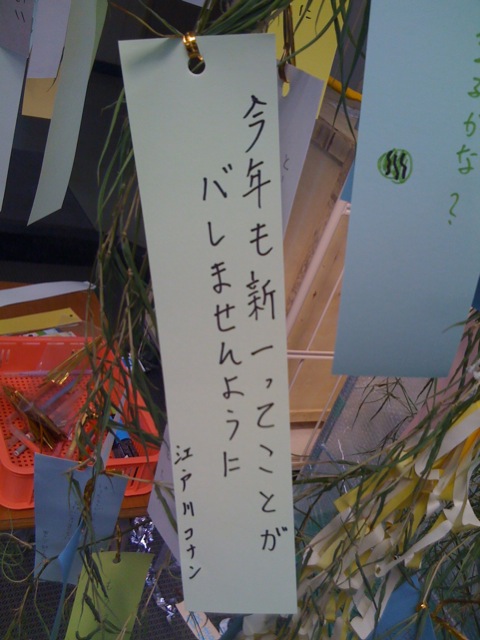 今年も新一ってことが
バレませんように
江戸川コナン
るかな?